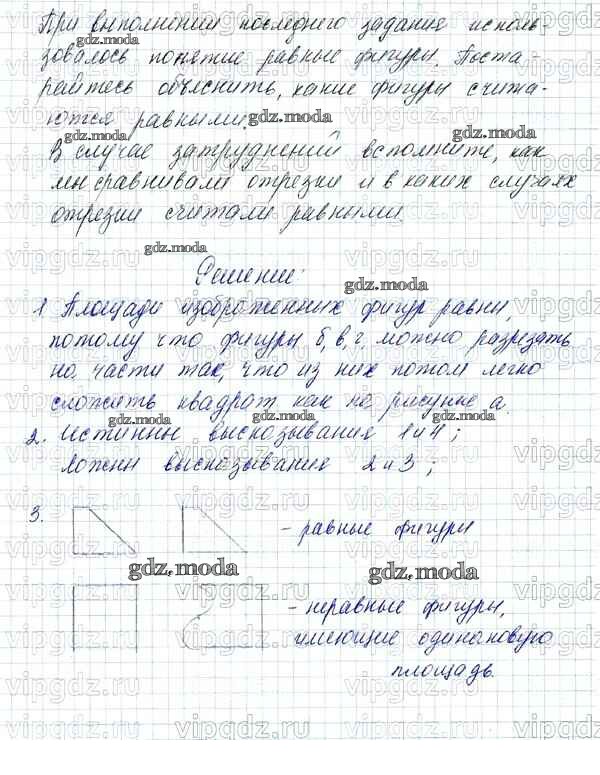 При выполнении последнего задания исполь-
зовалось понятие равные фигуры. Поста-
райтесь объяснить, какие фигуры счита-
ются равными.
В случае затруднений вспомните, как
мы сравнивали отрезки и в каких случаях
отрезки считали равными.
Решение:
1 Площади изображенных фигур равны,
потому что фигуры б, в, г, можно разрезать
на части так, что из них потом легко
сложить квадрат как на рисунке а.
2. Истинны высказывания 1 и 4;
Ложны высказывания 2 и 3;
3.
- равные фигуры
- неравные фигуры,
имеющие одинаковую
площадь.
gdz.moda
vipgdz.ru